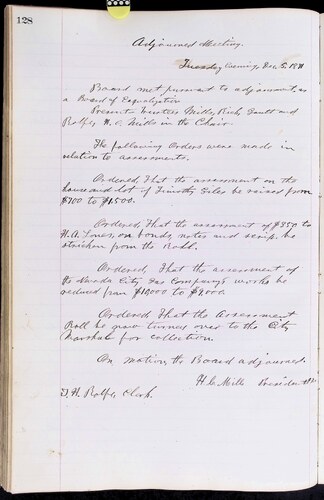 128
Adjourned Meeting.
Tuesday Evening, Dec 5. 1871
Board met pursuant to adjournment as
a Board of Equalization
Present: Trustees Mills, Rich, and
Rolfe, H. C. Mills in the Chair.
The following Orders were made in
relation to assessments.
Ordered, That the assessment on the
house and lot of Timothy Giles be raised from
$700 to $1500.
Ordered, That the assessment of $350 to
H. A. on bonds, notes and scrip be
stricken from the Roll.
Ordered, That the assessment of
the Nevada City Gas Company's works be
reduced from to
Ordered That the Assessment
Roll be now turned over to the City
Marshal for collection.
On motion, the Board adjourned.
H. C. Mills President
T. H. Rolfe, Clerk.